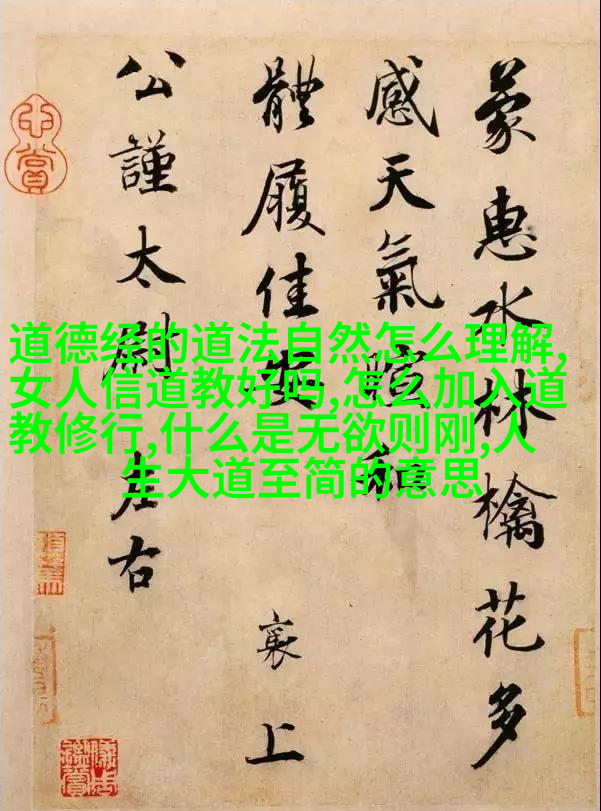 蒙惠水林檎花多
感天氣暄和
體履佳安 襄上
公謹太尉左右
道德经的道法自然怎么理解,
女人信道教好吗,怎么加入道
教修行,什么是无欲则刚,人
生大道至简的意思